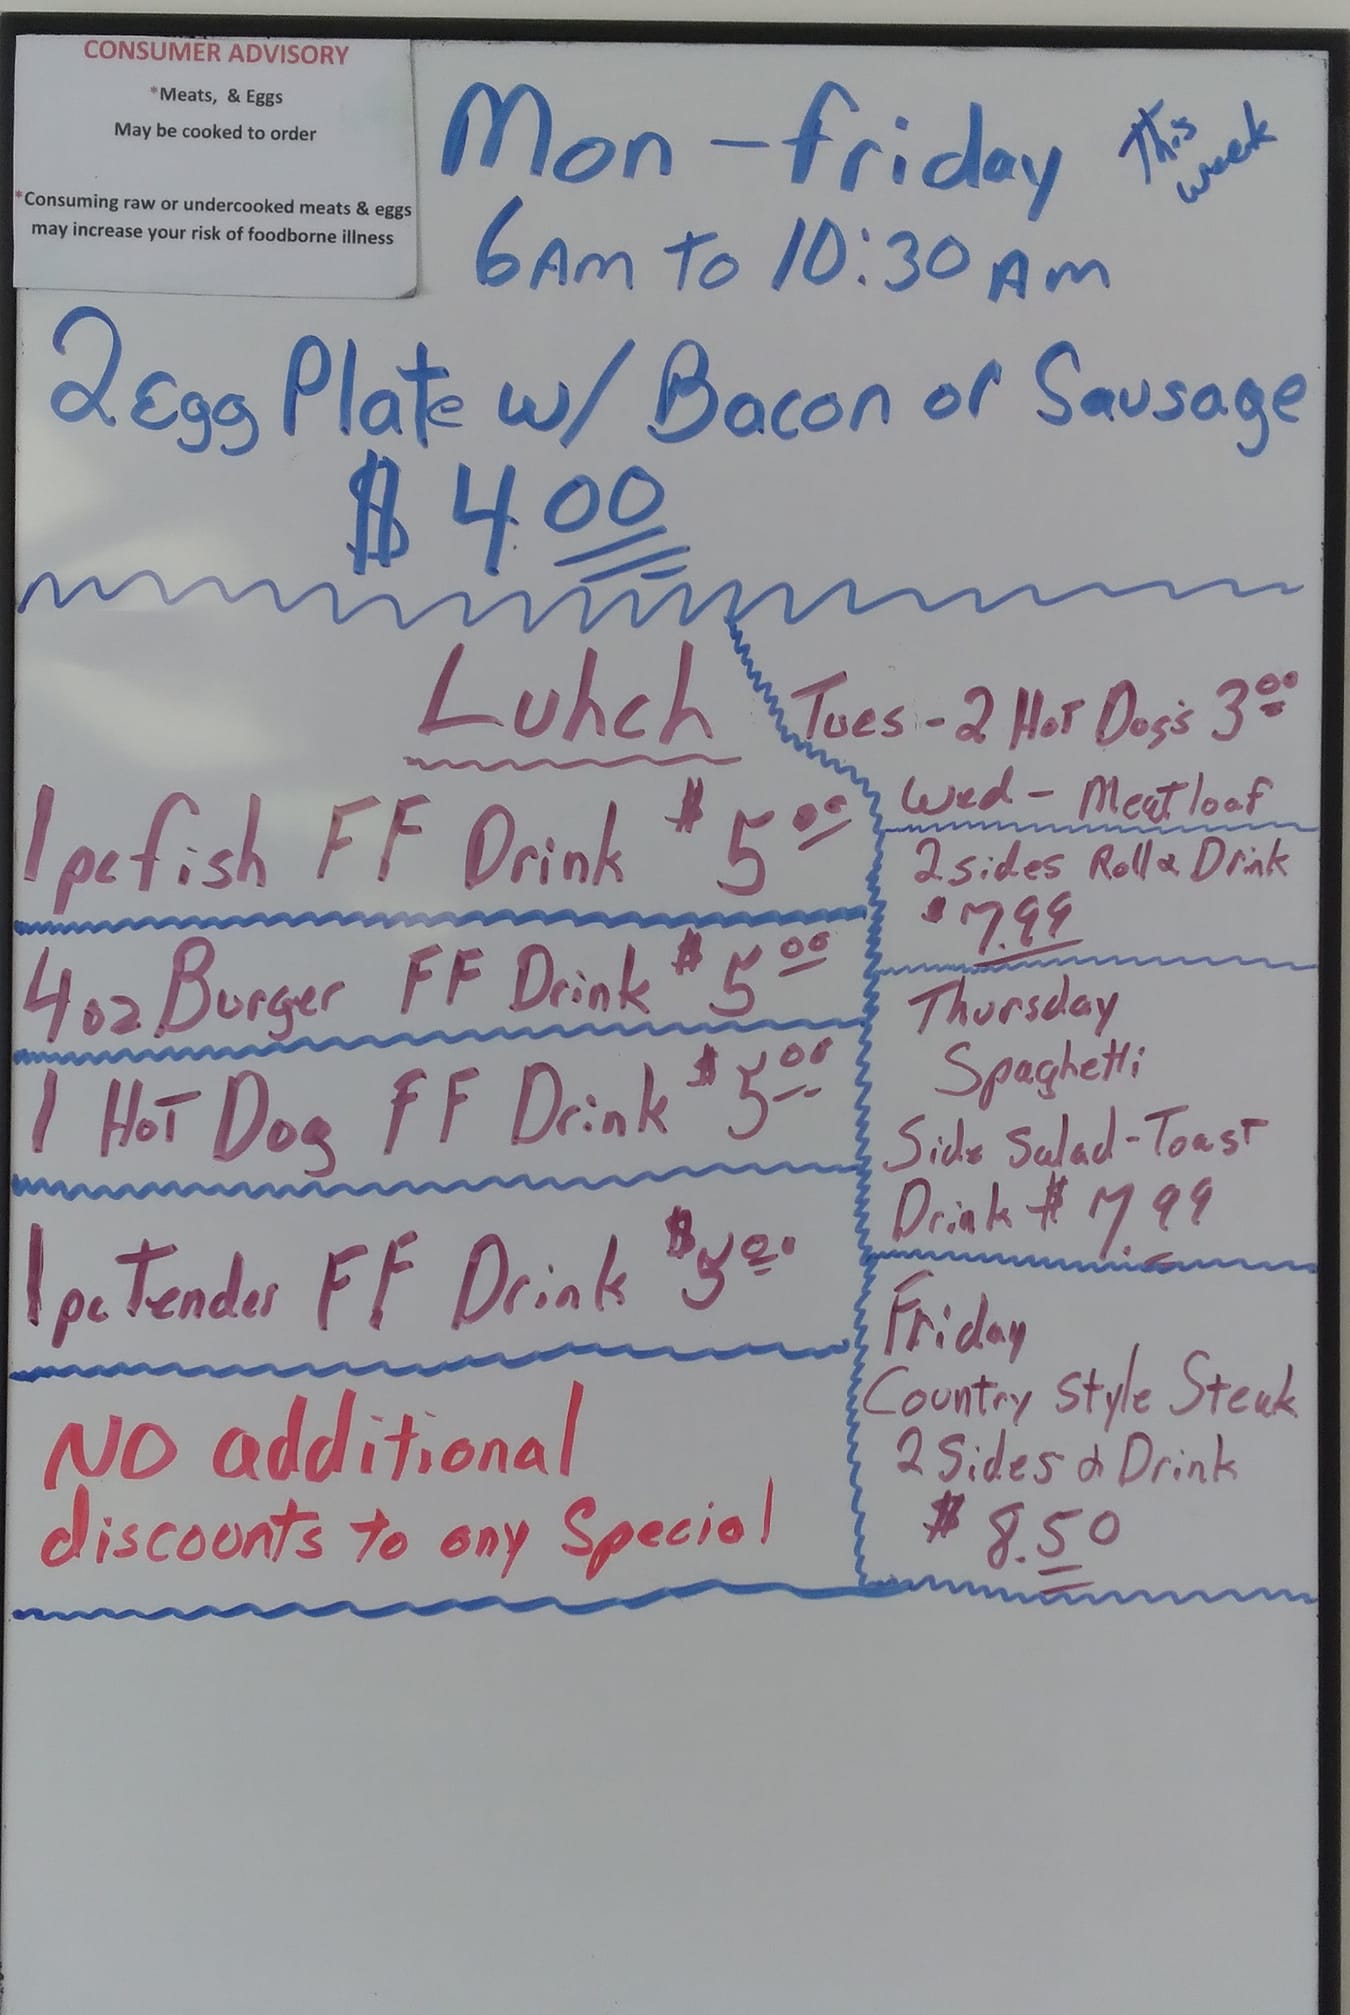 CONSUMER ADVISORY
*Meats, & Eggs
May be cooked to order
*Consuming raw or undercooked meats & eggs
may increase your risk of foodborne illness
Mon - friday This week
6 Am To 10:30 Am
2 Egg Plate w/ Bacon or Sausage
$ 4 00
Lunch
1 pc fish FF Drink $ 5 00
4 oz Burger FF Drink $ 5 00
1 Hot Dog FF Drink $ 5 00
1 pc Tender FF Drink $ 5 00
NO additional
discounts to any Special
Tues - 2 Hot Dog's 3 00
Wed - Meatloaf
2 sides Roll & Drink
$ 7.99
Thursday
Spaghetti
Side Salad - Toast
Drink $ 7.99
Friday
Country Style Steak
2 Sides & Drink
$ 8.50